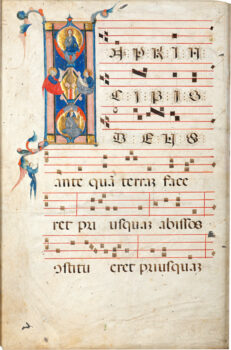 IN PRIN
CIPIO
DEUS
ante quā terraz face
ret pri usquaz abissos
ɔstitu eret priusquaz